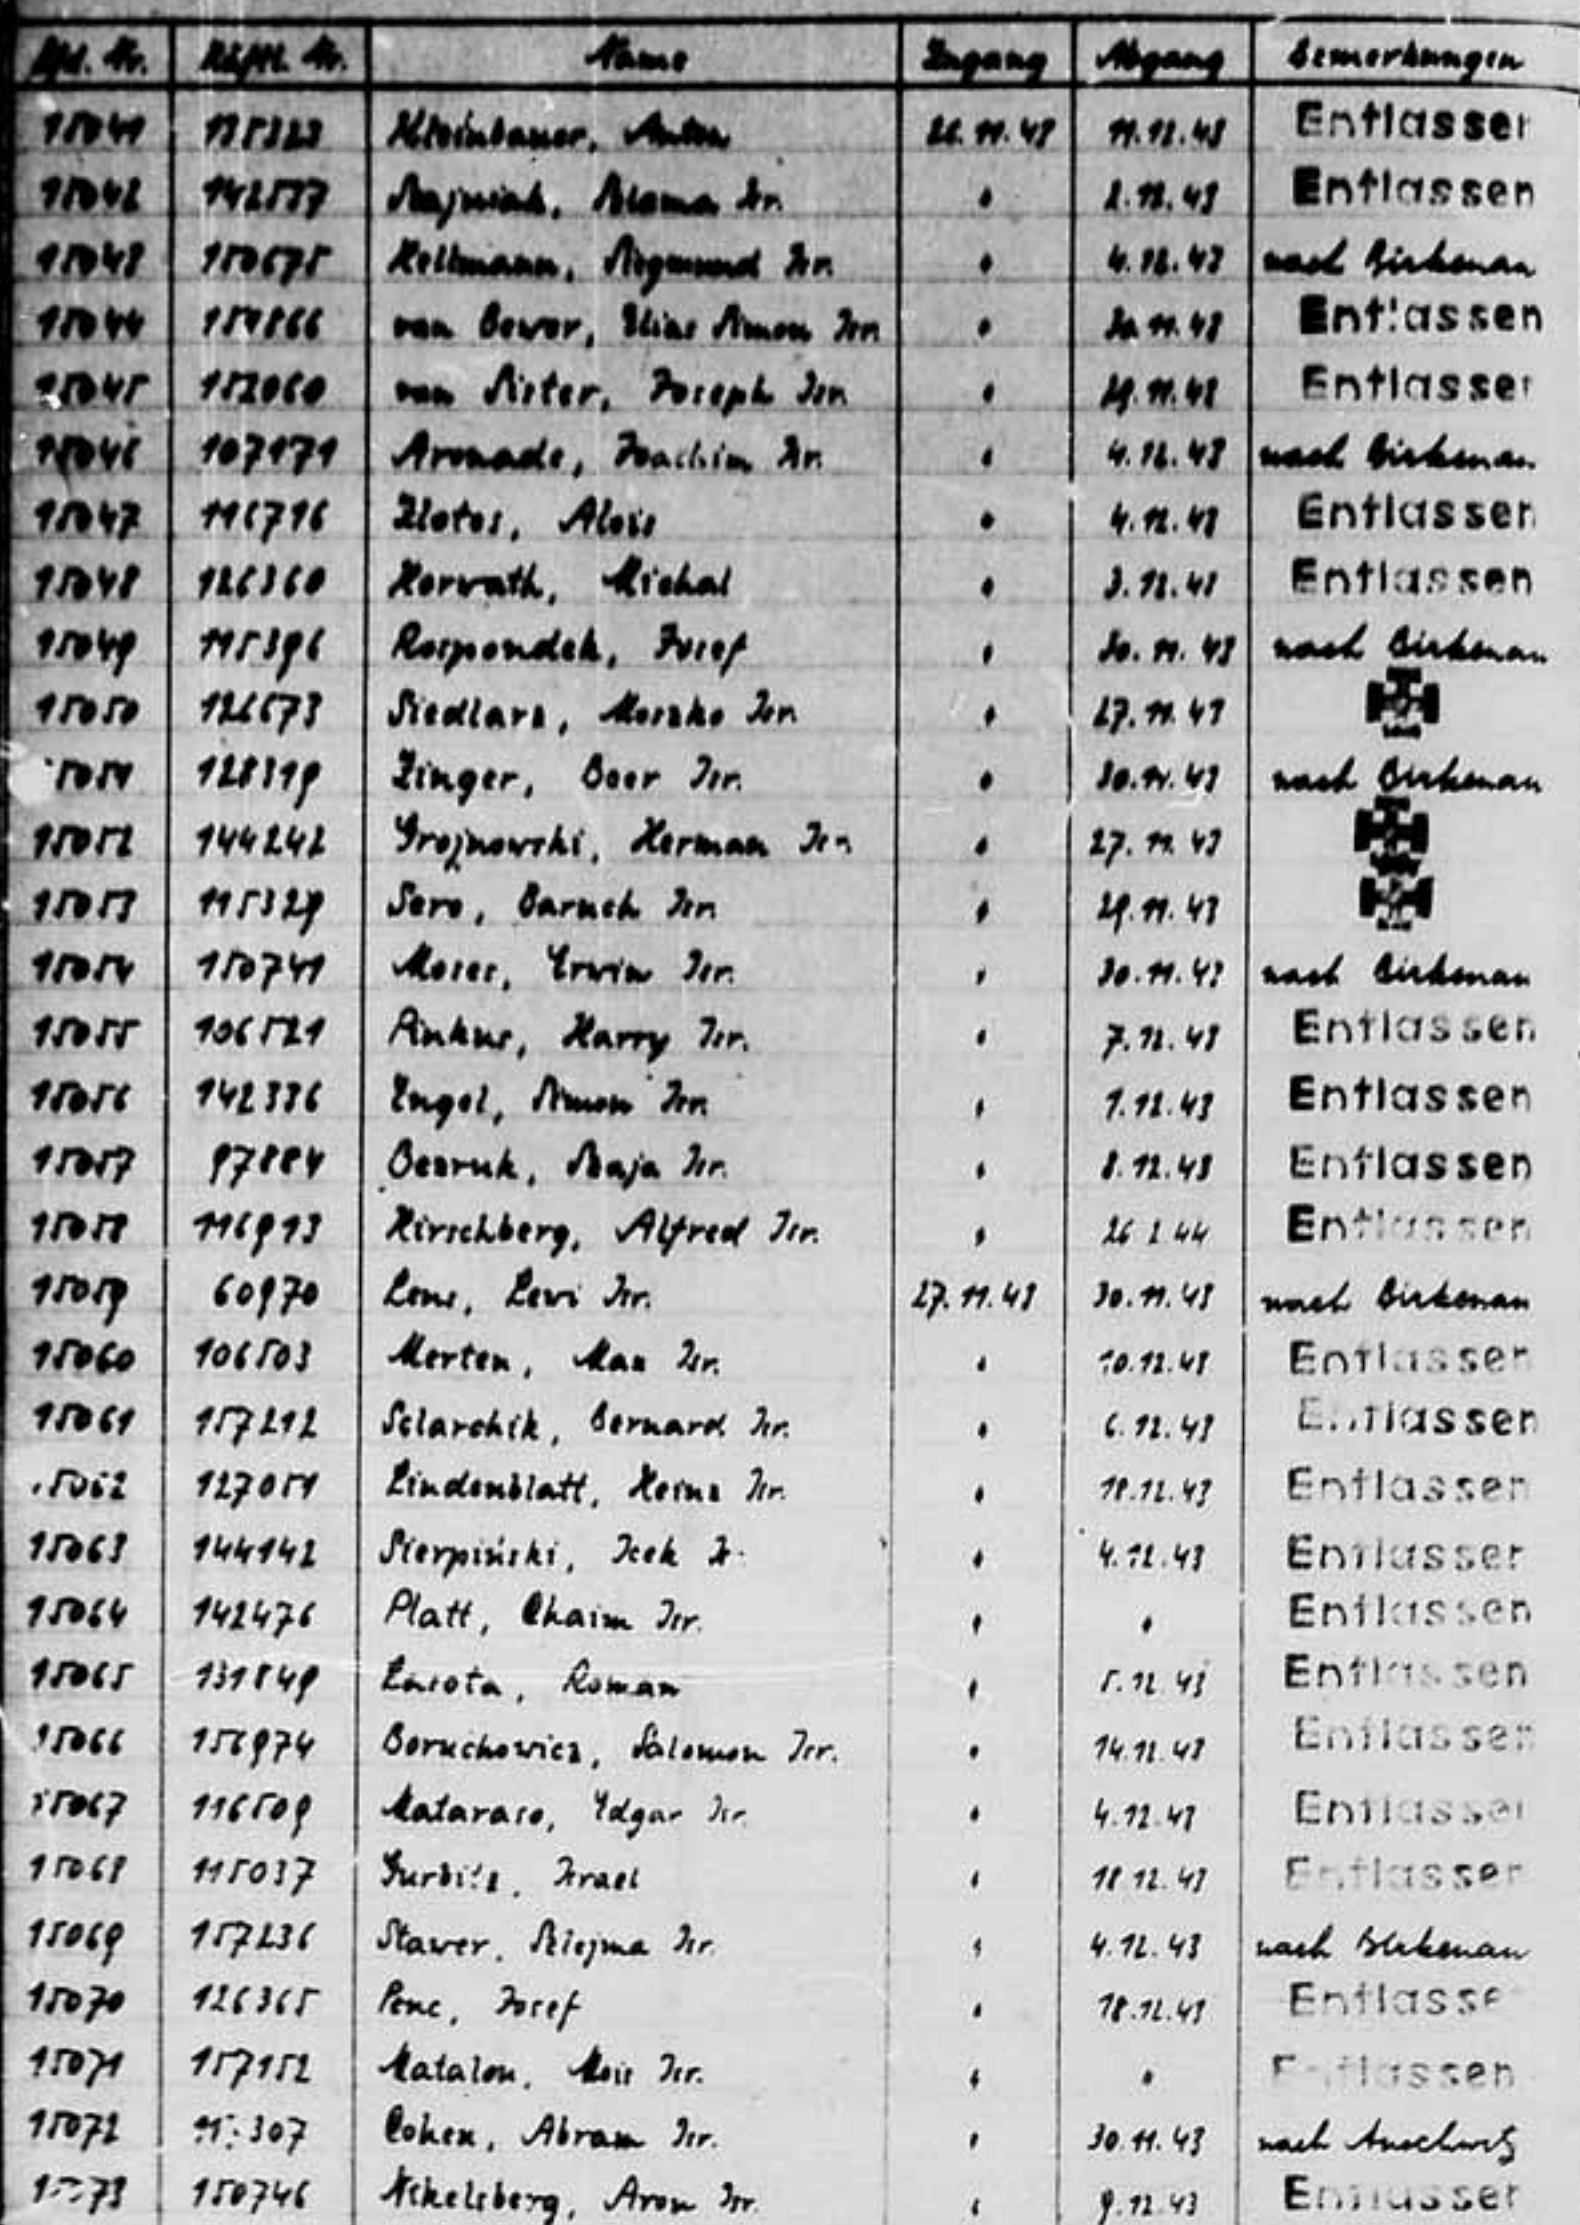 Lfd. Nr. Häftl. Nr. Name Zugang Abgang Bemerkungen
15041 Kleinbauer, Anton 26.11.43 11.12.43 Entlassen
15042 Isr. 2.12.43 Entlassen
15043 150675 Hellmann, Siegmund Isr. " 4.12.43 nach Birkenau
15044 van Bewer, Elias Simon Isr. " 30.11.43 Entlassen
15045 152060 van Sister, Joseph Isr. " 29.11.43 Entlassen
15046 107171 Aronade, Joachim Isr. " 4.12.43 nach Birkenau
15047 116716 Zlotos, Alois " 4.12.43 Entlassen
15048 126360 Horvath, Michal " 3.12.43 Entlassen
15049 115396 Rospondek, Josef " 30.11.43 nach Birkenau
15050 126673 Siedlarz, Moszko Isr. " 27.11.43
15051 128319 Zinger, Beer Isr. " 30.11.43 nach Birkenau
15052 144242 Grojnowski, Herman Isr. " 27.11.43
15053 115329 Sero, Baruch Isr. " 29.11.43
15054 150741 Moses, Erwin Isr. " 30.11.43 nach Birkenau
15055 106521 Pinkus, Harry Isr. " 7.12.43 Entlassen
15056 142336 Engel, Simon Isr. " 1.12.43 Entlassen
15057 97884 Bezruk, Isr. " 8.12.43 Entlassen
15058 116913 Hirschberg, Alfred Isr. " 26.2.44 Entlassen
15059 60970 Lens, Levi Isr. 27.11.43 30.11.43 nach Birkenau
15060 106503 Merten, Max Isr. " 10.12.43 Entlassen
15061 157212 Sclarchik, Bernard Isr. " 6.12.43 Entlassen
15062 127051 Lindenblatt, Heinz Isr. " 18.12.43 Entlassen
15063 144142 Sierpiński, Icek Isr. " 4.12.43 Entlassen
15064 142476 Platt, Chaim Isr. " " Entlassen
15065 131849 Lasota, Roman " 5.12.43 Entlassen
15066 156974 Boruchowicz, Salomon Isr. " 14.12.43 Entlassen
15067 116509 Mataraso, Edgar Isr. " 4.12.43 Entlassen
15068 115037 Israel " 18.12.43 Entlassen
15069 157236 Stawer, Szlojma Isr. " 4.12.43 nach Birkenau
15070 126365 Penc, Josef " 18.12.43 Entlassen
15071 157152 Matalon, Mois Isr. " " Entlassen
15072 307 Cohen, Abram Isr. " 30.11.43 nach Auschwitz
15073 150746 Nikelsberg, Aron Isr. " 9.12.43 Entlassen